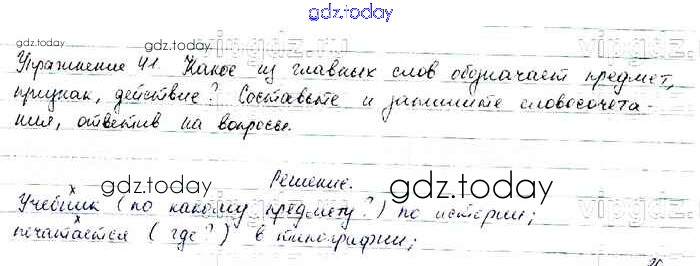 gdz.today
vipgdz.ru
gdz.today
gdz.today
Упражнение 41. Какое из главных слов обозначает предмет,
признак, действие? Составьте и запишите словосочета-
ния, ответив на вопросы.
Решение.
gdz.today
gdz.today
vipgdz
Учебник (по какому предмету?) по истории;
печатается (где?) в типографии;